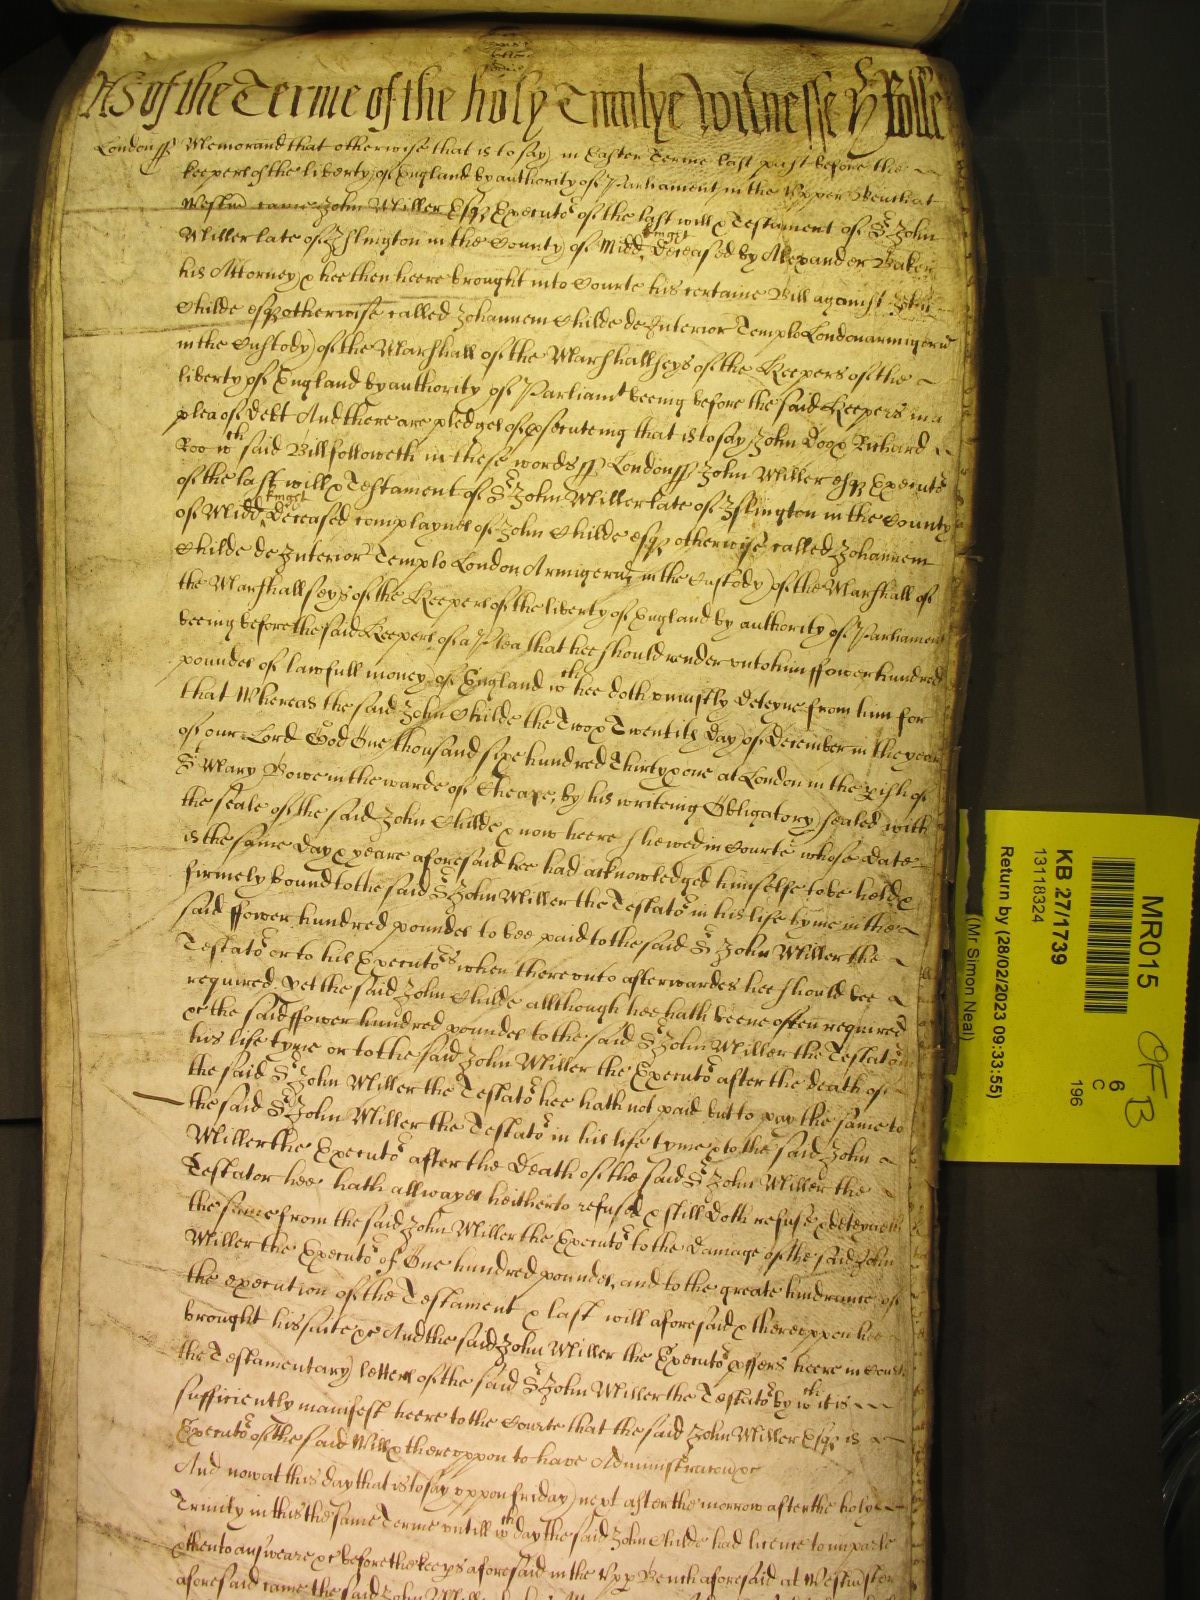 As of the Terme of the holy Trinitye Witnesse H Rolle
London ss Memorand that otherwise that is to say in Easter Terme last past before the
keepers of the liberty of England by authority of Parliament in the Upper Bench at
Westmr came John Miller Esqr Executor of the last will & Testament of Sr John
Miller late of Islington in the County of Midd knight deceased by Alexander Baker
his Attorney & hee then heere brought into Courte his certaine Bill against John
Childe esqr otherwise called Johannem Childe de Interior Templo London armigerum
in the Custody of the Marshall of the Marshallseys of the Keepers of the
liberty of England by authority of Parliamt beeing before the said Keepers in a
plea of debt And there are pledges of prosecuteing that is to say John Doo & Richard
Roo wch said Bill followeth in these words ss London ss John Miller esqr Executor
of the last will & Testament of Sr John Miller late of Islington in the County
of Midd knight deceased complaynes of John Childe esqr otherwise called Johannem
Childe de Interior Templo London Armigerum in the Custody of the Marshall of
the Marshallseys of the Keepers of the liberty of England by authority of Parliament
beeing before the said Keepers of a Plea that hee should render unto him ffower hundred
poundes of lawfull money of England wch hee doth uniustly deteyne from him for
that Whereas the said John Childe the Two & Twentith day of December in the yeare
of our Lord God One thousand sixe hundred Thirty & one at London in the pish of
S Mary Bowe in the warde of Cheape, by his writeing Obligatory sealed with
the seale of the said John Childe & now heere shewed in Courte whose date
is the same day & yeare aforesaid hee had acknowledged himselfe to be held &
firmely bound to the said Sr John Miller the Testator in his life tyme in the
said ffower hundred poundes to bee paid to the said Sr John Miller the
Testator or to his Executors when thereunto afterwardes hee should bee
required Yet the said John Childe allthough hee hath beene often required
&c the said ffower hundred poundes to the said Sr John Miller the Testator in
his life tyme or to the said John Miller the Executor after the death of
the said Sr John Miller the Testator hee hath not paid but to pay the same to
the said Sr John Miller the Testator in his life tyme & to the said John
Miller the Executor after the Death of the said Sr John Miller the
Testator hee hath allwayes heitherto refused & still doth refuse & deteyneth
the same from the said John Miller the Executor to the damage of the said John
Miller the Executor of One hundred poundes, and to the greate hindrance of
the execution of the Testament & last will aforesaid & thereuppon hee
brought his suite &c And the said John Miller the Executor pffers heere in Court
the Testamentary letters of the said Sr John Miller the Testator by wch it is
sufficiently manifest heere to the Courte that the said John Miller Esqr is
Executor of the said Will & thereuppon to have Administracon &c
And now at this day that is to say uppon friday next after the morrow after the holy
Trinity in this the same Terme untill wch day the said John Childe had licence to imparle
& then to answeare &c before the keeps aforesaid in the Upp Bench aforesaid at Westmster
aforesaid came the said John
MR015
KB 27/1739
13118324
Return by (28/02/2023 09:33:55)
(Mr Simon Neal)
6
C
196
OFB